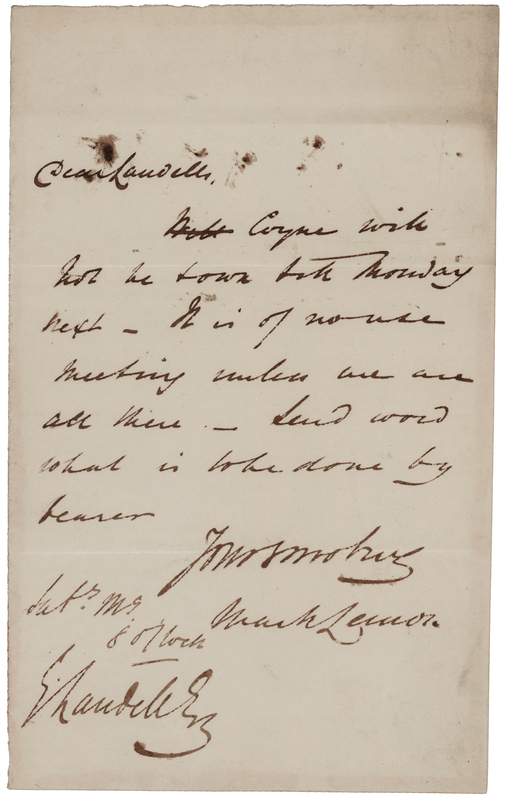 Dear Landells,
Coyne will
not be town till Monday
next – It is of no use
meeting unless we are
all there. – Send word
what is to be done by
bearer
Yours
Mark Lemon
Saty Mg
8 o'Clock
E Landells Esq